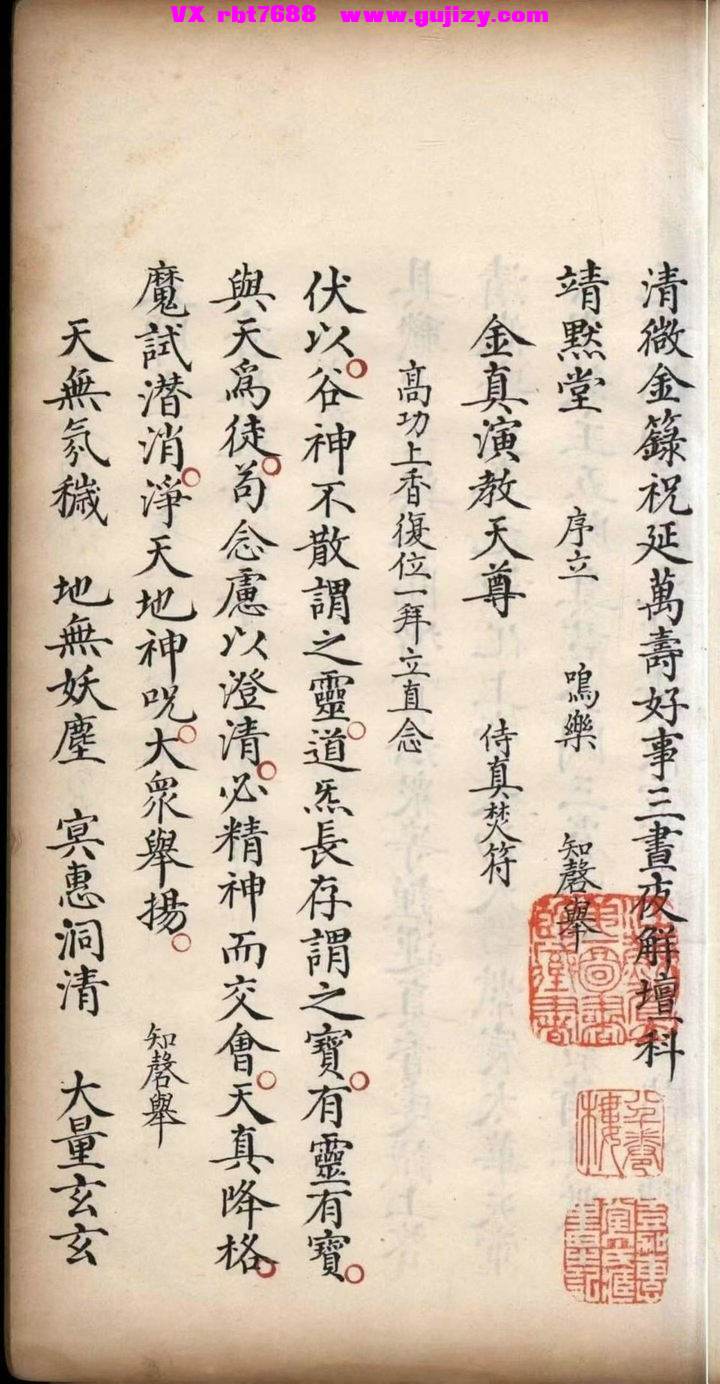 VX rbt7688 www.gujizy.com
清微金籙祝延萬壽好事三晝夜解壇科
靖黙堂 序立 鳴樂 知磬舉
金真演教天尊 侍真焚符
高功上香復位一拜立直念
伏以。谷神不散謂之靈。道炁長存謂之寶。有靈有寶。
與天爲徒。苟念慮以澄清。必精神而交會。天真降格。
魔試潛消。淨天地神呪。大衆舉揚。 知磬舉
天無氛穢 地無妖塵 冥惠洞清 大量玄玄